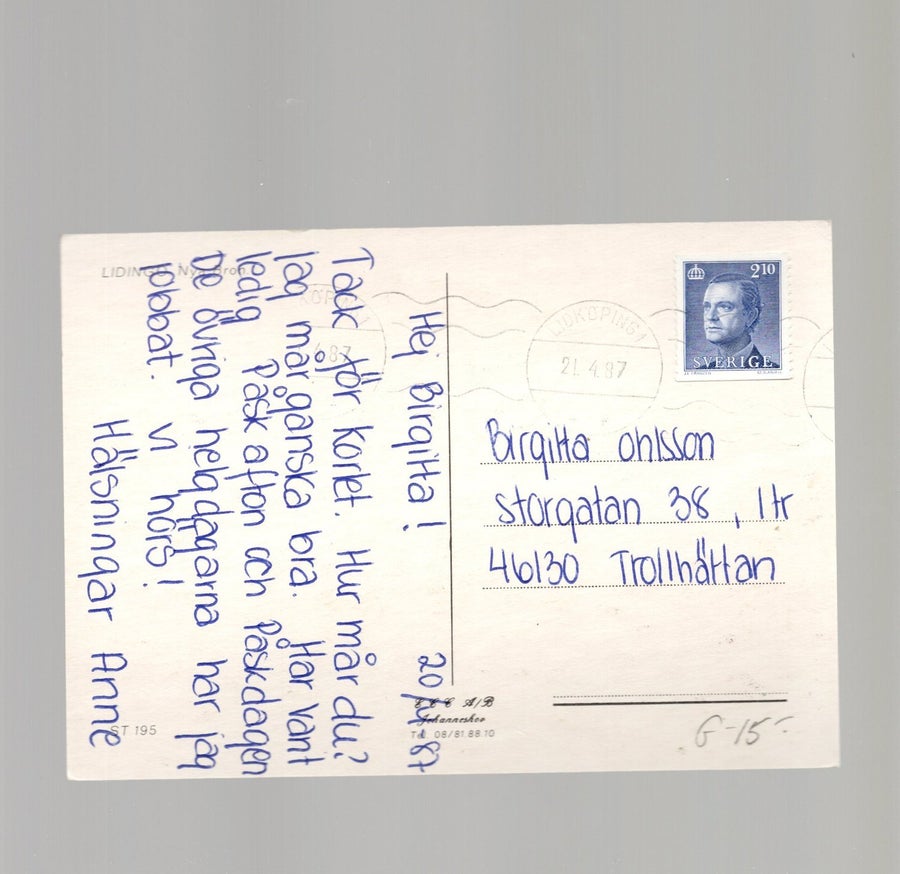 LIDINGÖ Nya Bron.
Hej Birgitta! 20/4 87
Tack för kortet. Hur mår du?
Jag mår ganska bra. Har vant
ledig Påskafton och Påskdagen
De övriga helgdagarna har jag
jobbat. Vi hörs!
Hälsningar Anne
ST 195
A/B
Johanneshov
Tel 08/81.88.10
LIDKÖPING 1
21.4.87
210
SVERIGE
Birgitta Ohlsson
Storgatan 38, 1tr
46130 Trollhättan
G-15:-